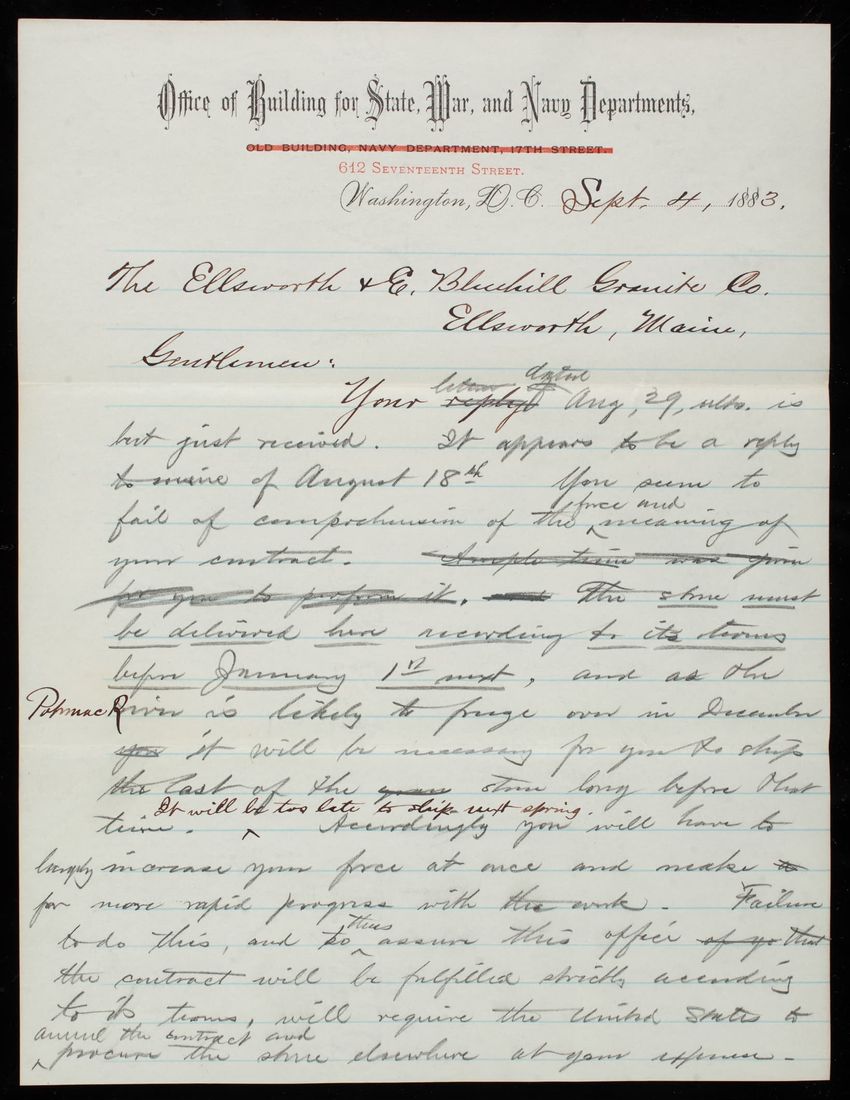 Office of Building for State, War, and Navy Departments,
OLD BUILDING, NAVY DEPARTMENT, 17TH STREET.
612 SEVENTEENTH STREET.
Washington, D.C. Sept. 4, 1883.
The Ellsworth & E. Bluehill Granite Co.
Ellsworth, Maine,
Gentlemen:
letter dated
Your reply of Aug, 29, ulto. is
but just received. It appears to be a reply
to mine of August 18th You seem to
force and
fail of comprehension of the ^ meaning of
your contract. Ample time was given
for you to perform it, and The stone must
be delivered here according to its terms
before January 1st next, and as the
Potomac River is likely to freeze over in December
you it will be necessary for you to ship
the last of the stone long before that
It will be too late to ship next spring.
time. ^ Accordingly you will have to
largely increase your force at once and make
far more rapid progress with the work. Failure
thus
to do this, and to ^ assure this office of yo that
the contract will be fulfilled strictly according
to its terms, will require the United States to
annul the contract and
^ procure the stone elsewhere at your expense.